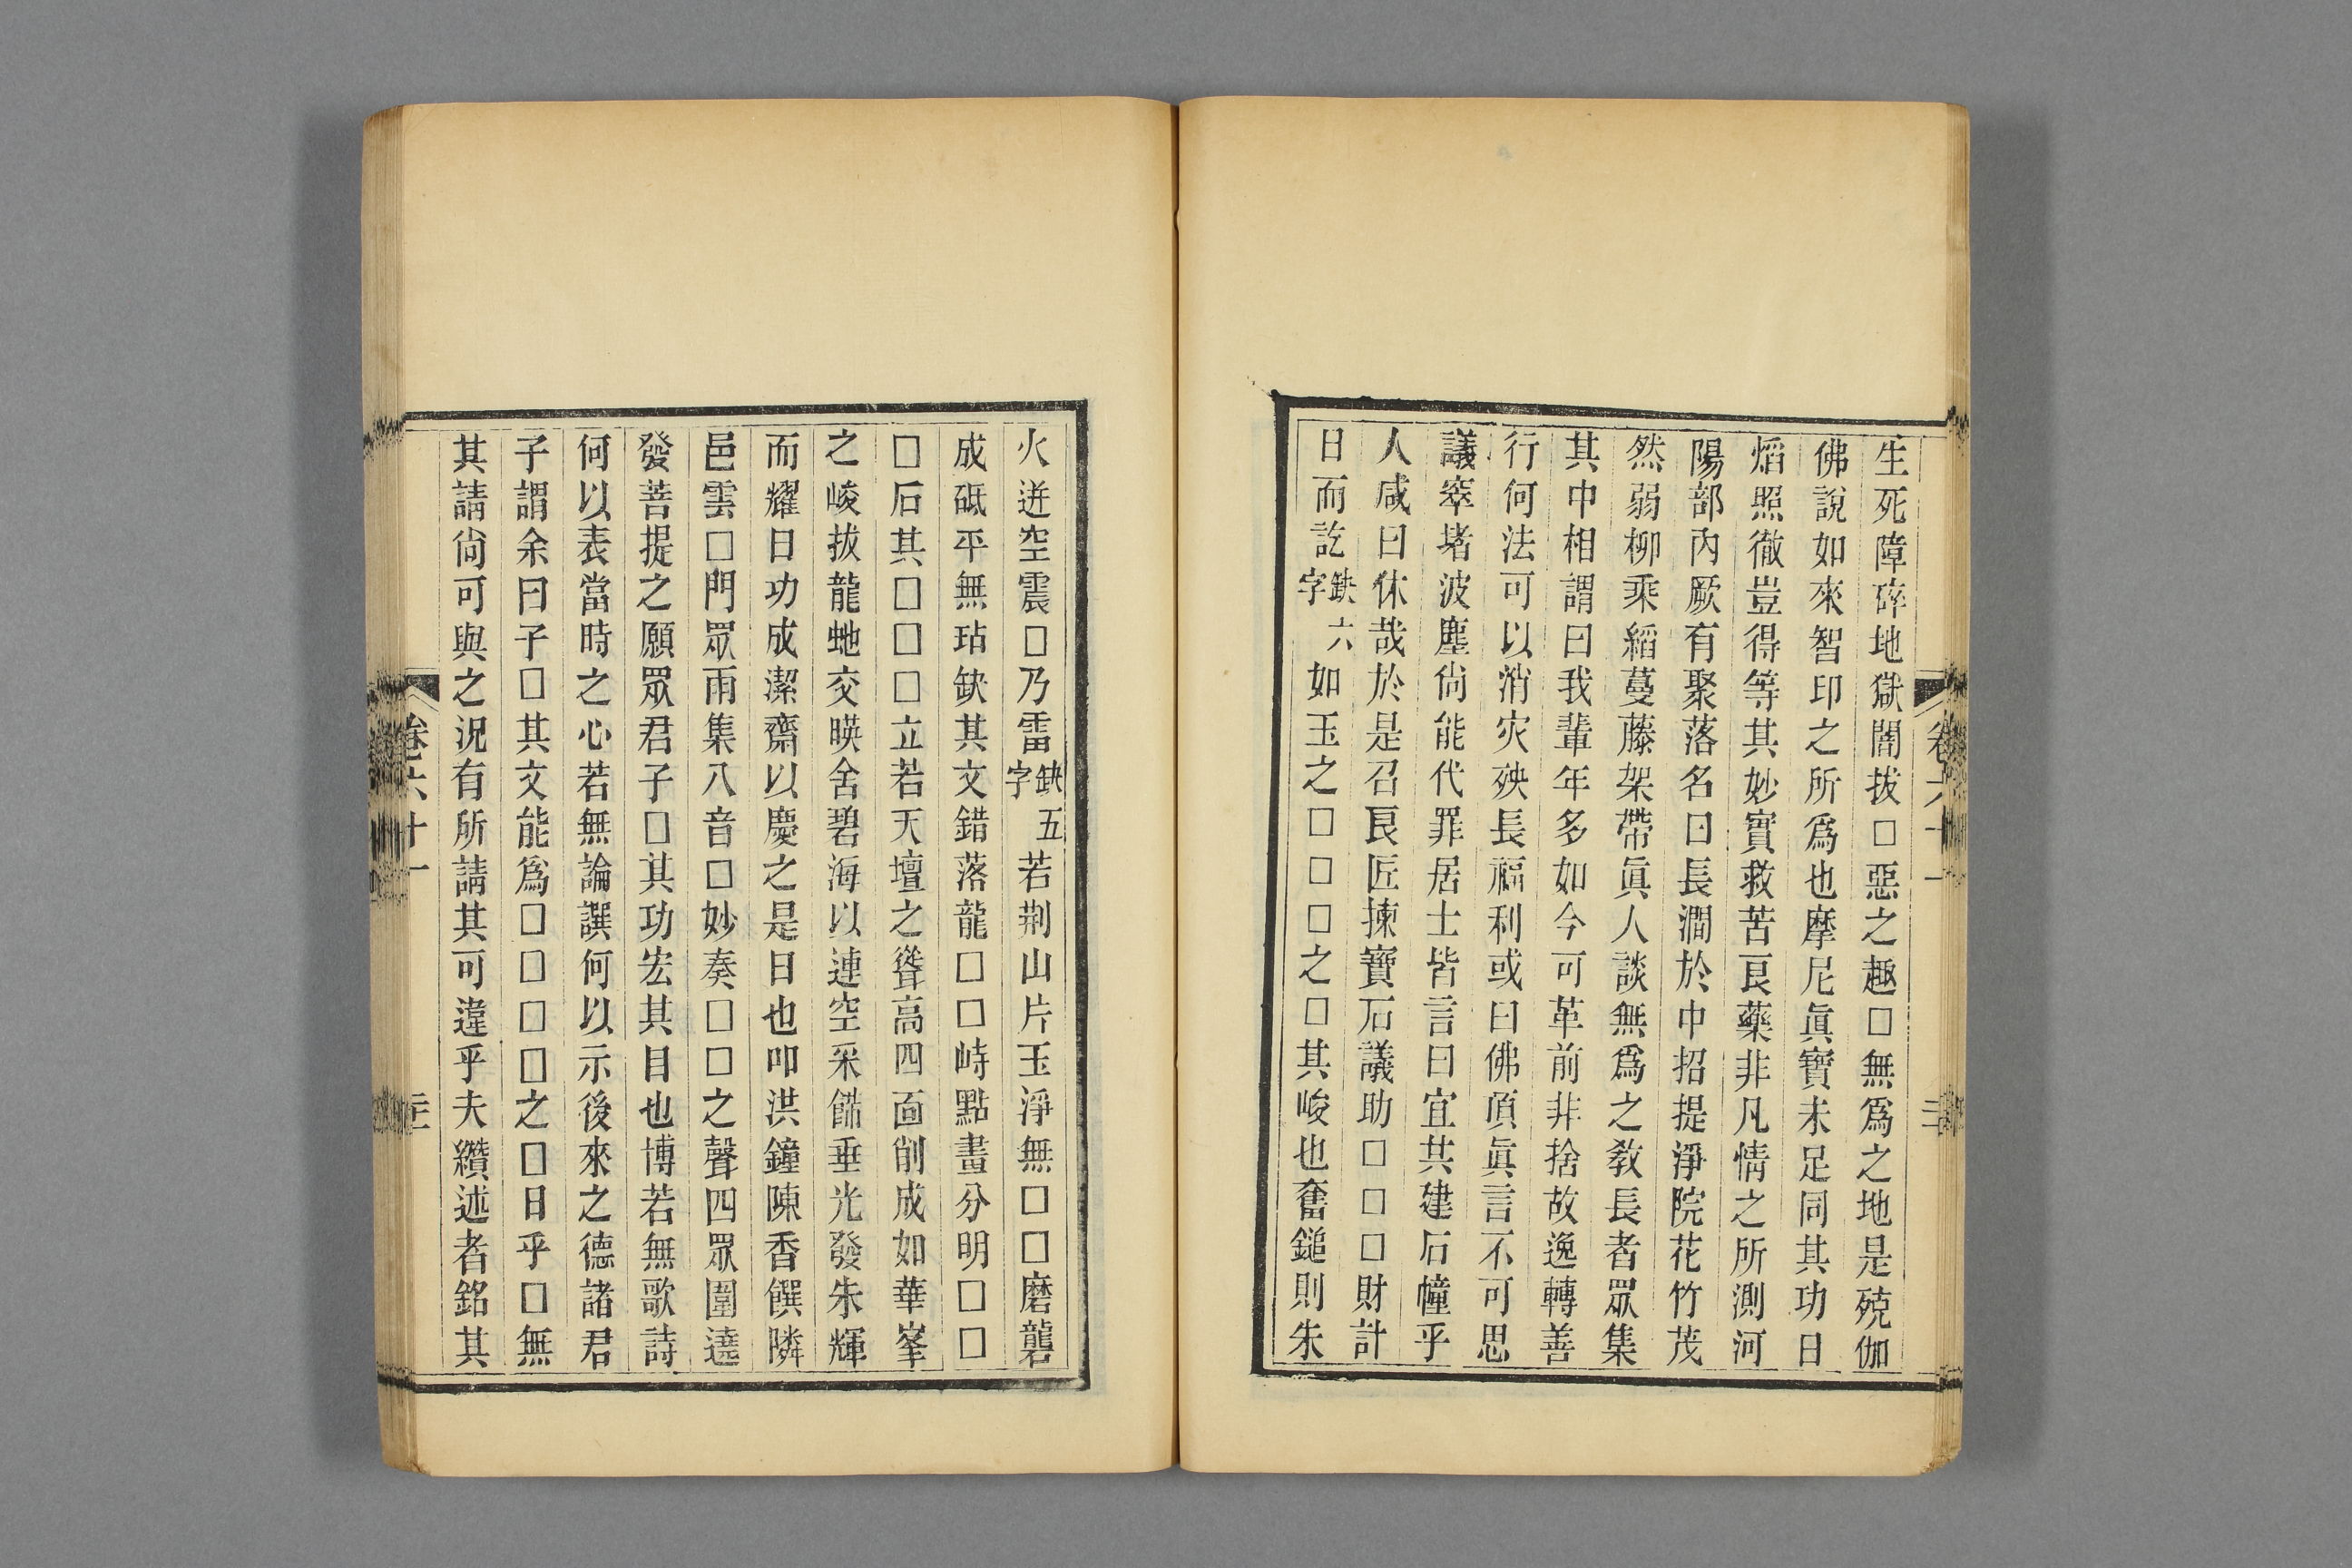 生死障碎地獄闇拔□惡之趣□無爲之地是殑伽
佛說如來智印之所爲也摩尼眞寶未足同其功日
熖照徹豈得等其妙實救苦良藥非凡情之所測河
陽部內厥有聚落名曰長澗於中招提淨院花竹茂
然弱柳乘縚蔓藤架帶眞人談無爲之教長者眾集
其中相謂曰我輩年多如今可革前非捨故逸轉善
行何法可以消灾殃長福利或曰佛頂眞言不可思
議窣堵波塵尙能代罪居士皆言曰宜共建石幢乎
人咸曰休哉於是召良匠揀寶石議助□□□財計
日而訖缺六字如玉之□□□之□其峻也奮鎚則朱
卷六十一
火迸空震□乃雷缺五字若荆山片玉淨無□□磨礱
成砥平無玷缺其文錯落龍□□峙點畫分明□□
□石其□□□立若天壇之聳高四面削成如華峯
之峻拔龍虵交暎舍碧海以連空采餙垂光發朱輝
而耀日功成潔齋以慶之是日也叩洪鐘陳香饌隣
邑雲□門眾雨集八音□妙奏□□之聲四眾圍遶
發菩提之願眾君子□其功宏其目也博若無歌詩
何以表當時之心若無論譔何以示後來之德諸君
子謂余曰子□其文能爲□□□□之□日乎□無
其請尙可與之況有所請其可違乎夫纘述者銘其
卷六十一